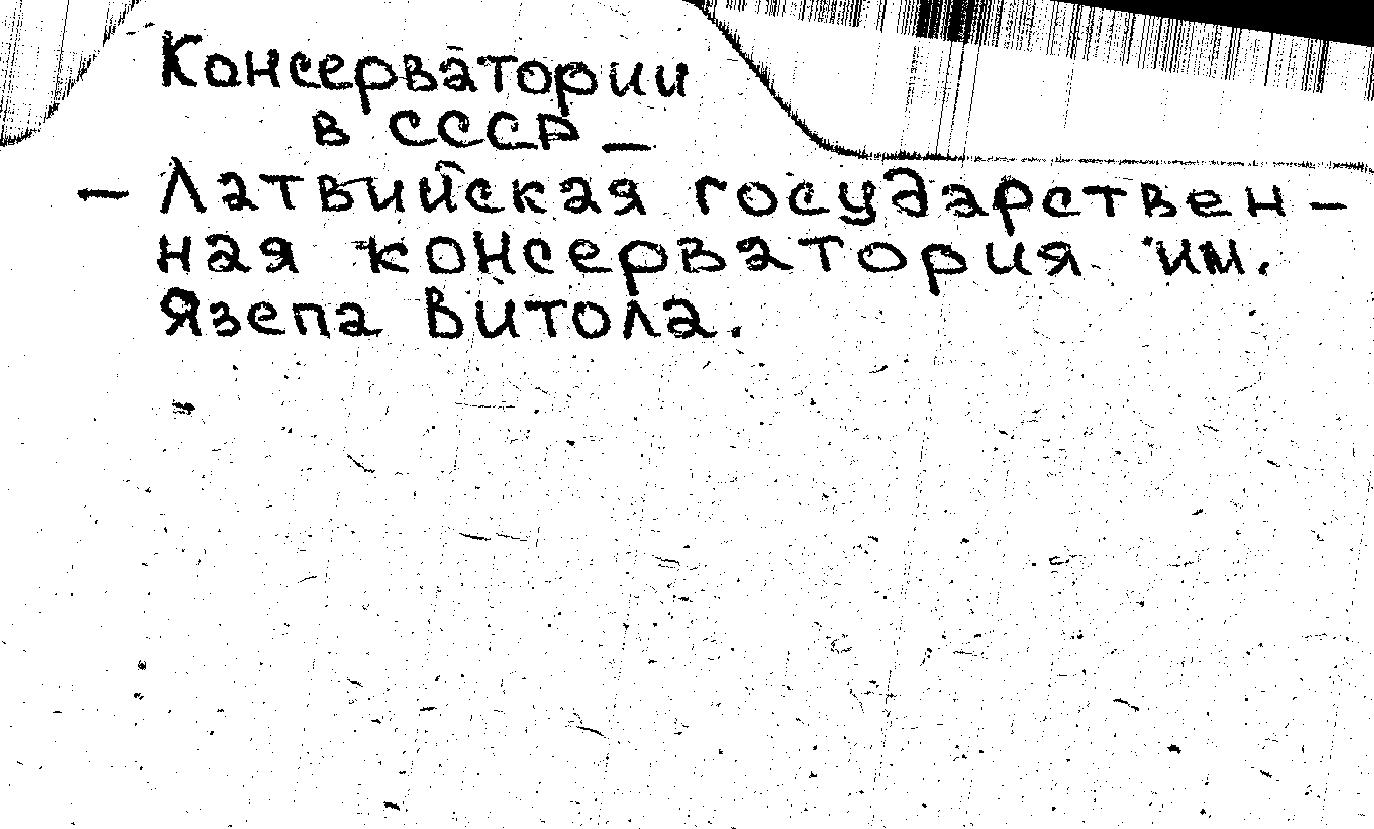 Консерватории
в СССР —
— Латвийская государствен-
ная консерватория им.
Язепа Витола.